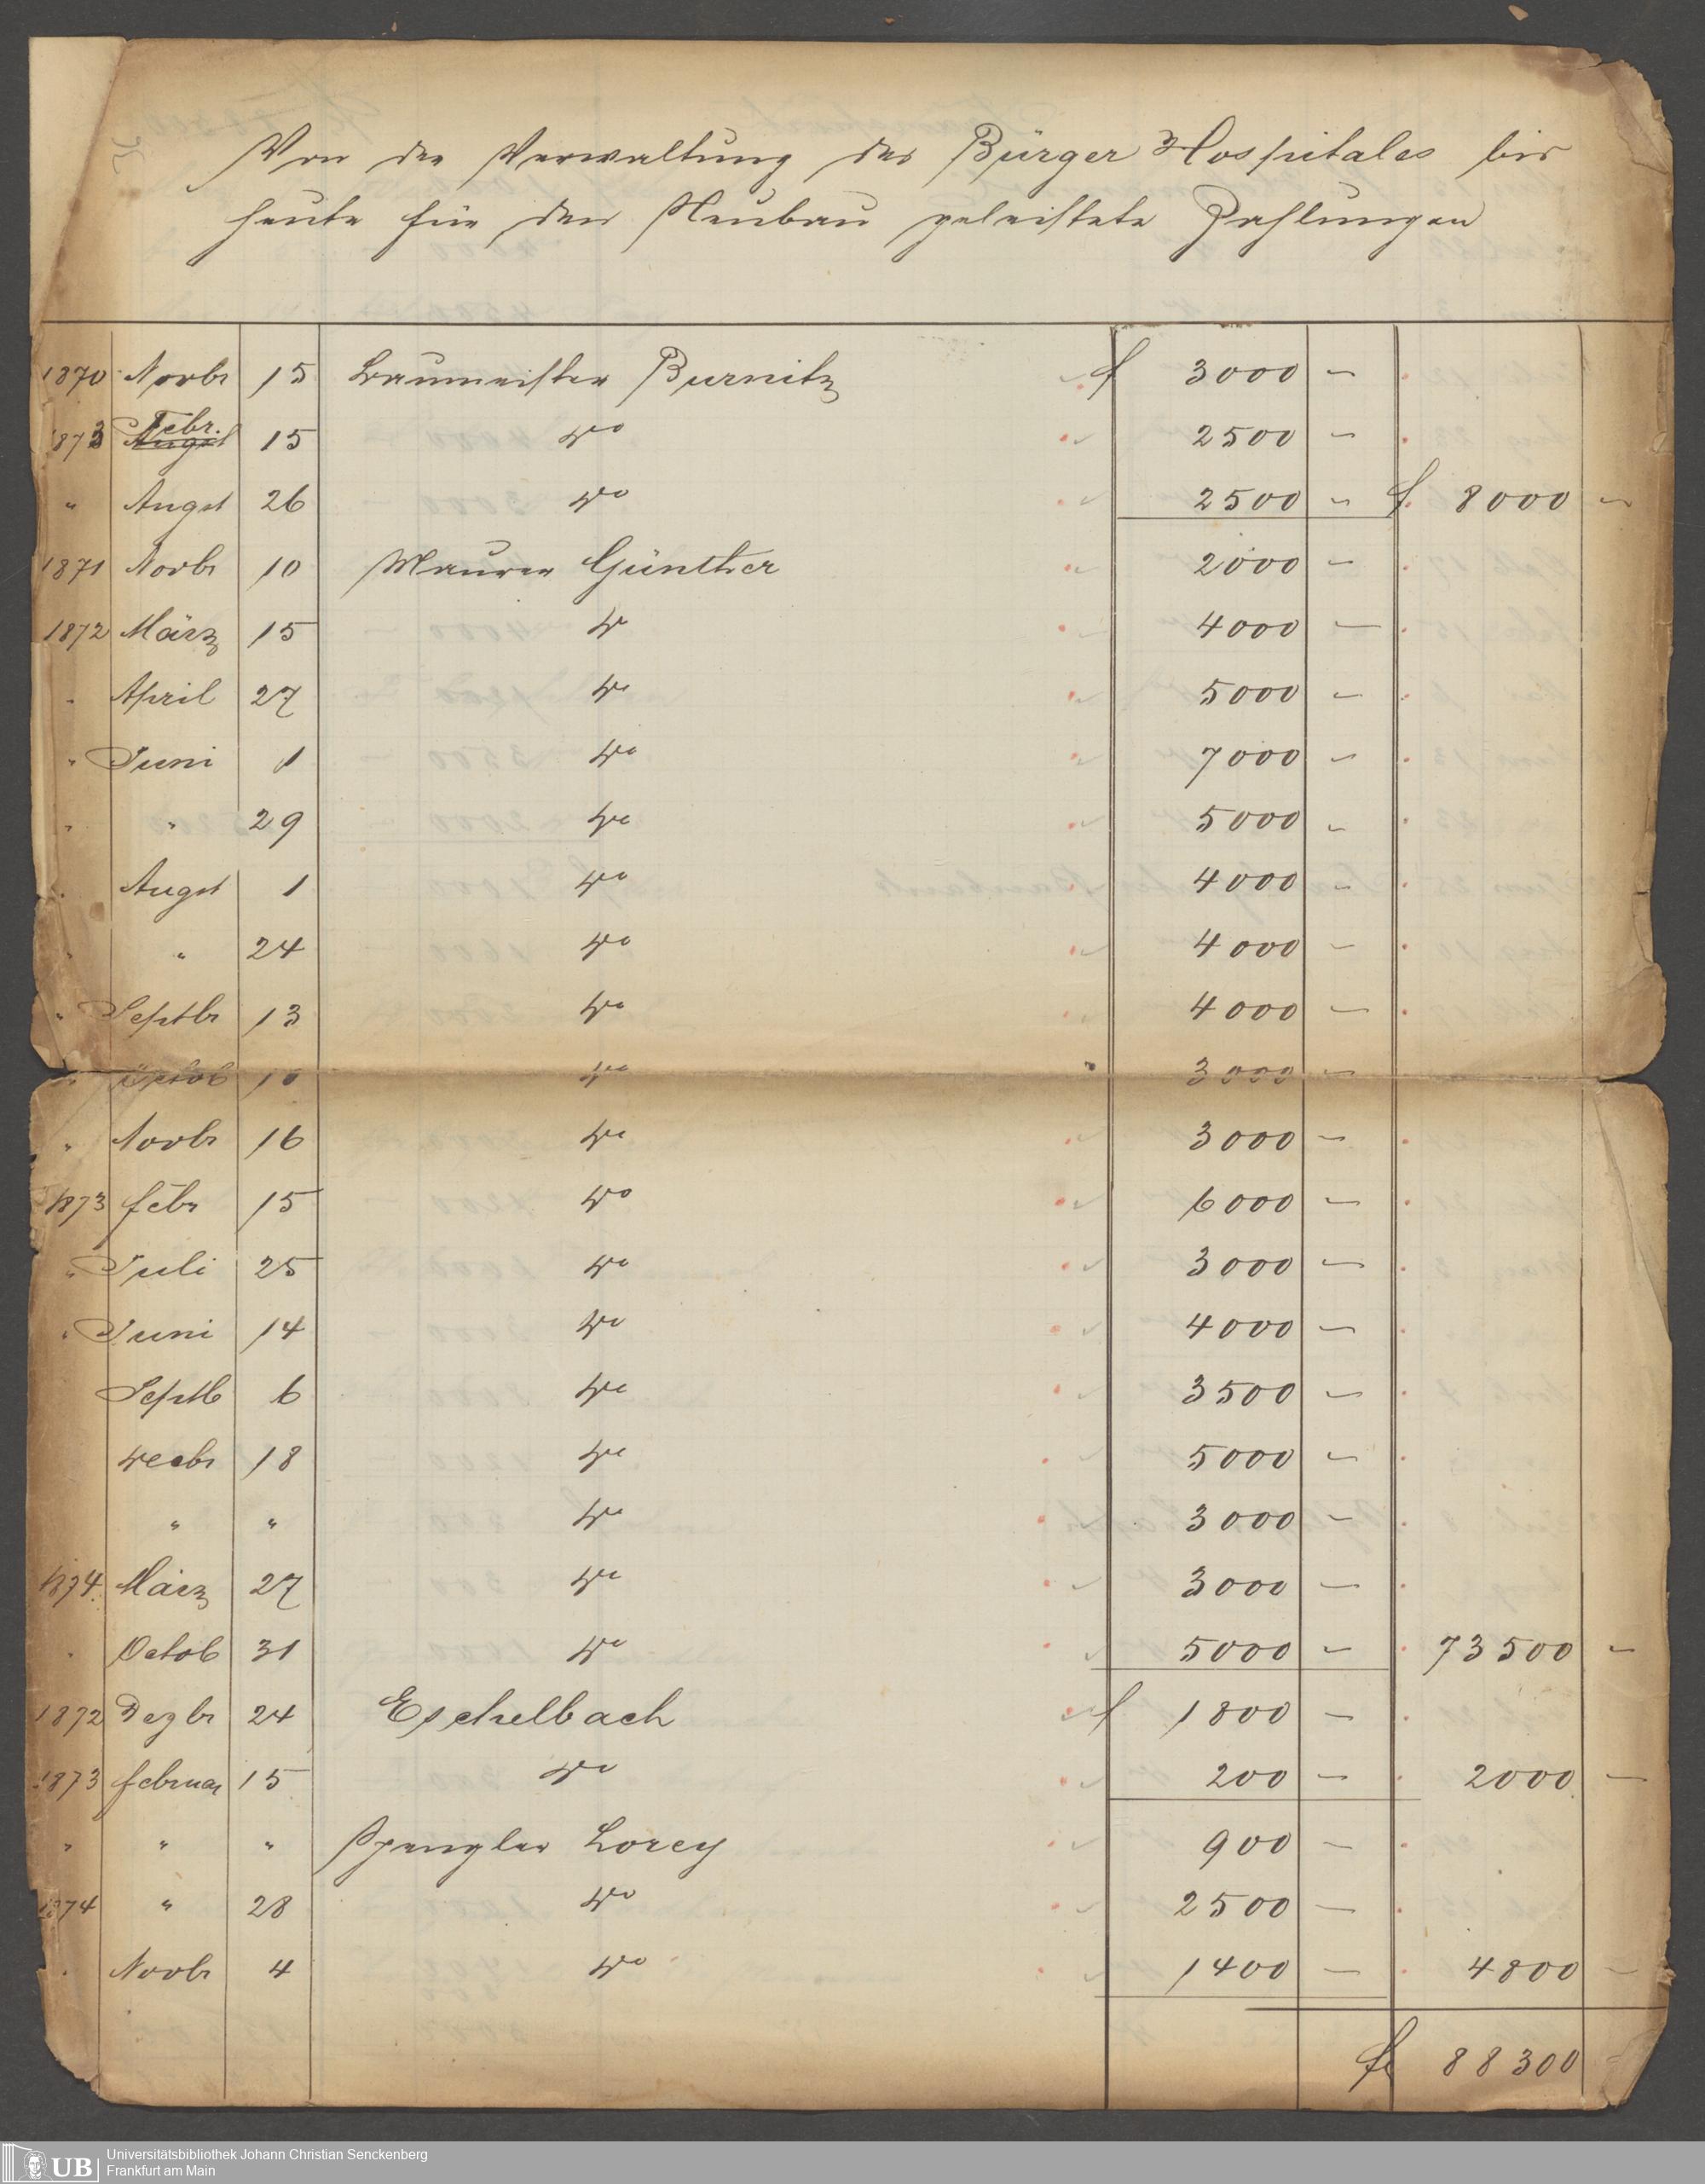 Von der Verwaltung des Bürger Hospitales bis
heute für den Neubau geleistete Zahlungen
1870 Novbr 15 Baumeister Burnitz f 3000 –
1873 Febr. 15 do 2500 –
" Augst 26 do 2500 – f 8000 –
1871 Novbr 10 Maurer Günther 2000 –
1872 März 15 do 4000 –
" April 27 do 5000 –
" Juni 1 do 7000 –
" " 29 do 5000 –
" Augst 1 do 4000 –
" " 24 do 4000 –
" Septbr 13 do 4000 –
" Octob 10 do 3000 –
" Novbr 16 do 3000 –
1873 febr 15 do 6000 –
" Juli 25 do 3000 –
" Juni 14 do 4000 –
Septb 6 do 3500 –
Decbr 18 do 5000 –
" " do 3000 –
1874 März 27 do 3000 –
" Octob 31 do 5000 – 73500 –
1872 Dezbr 24 Eschelbach f 1800 –
1873 februar 15 do 200 – 2000 –
" " " Spengler Lorey 900 –
1874 " 28 do 2500 –
" Novbr 4 do 1400 – 4800 –
f 88300 –
UB Universitätsbibliothek Johann Christian Senckenberg
Frankfurt am Main